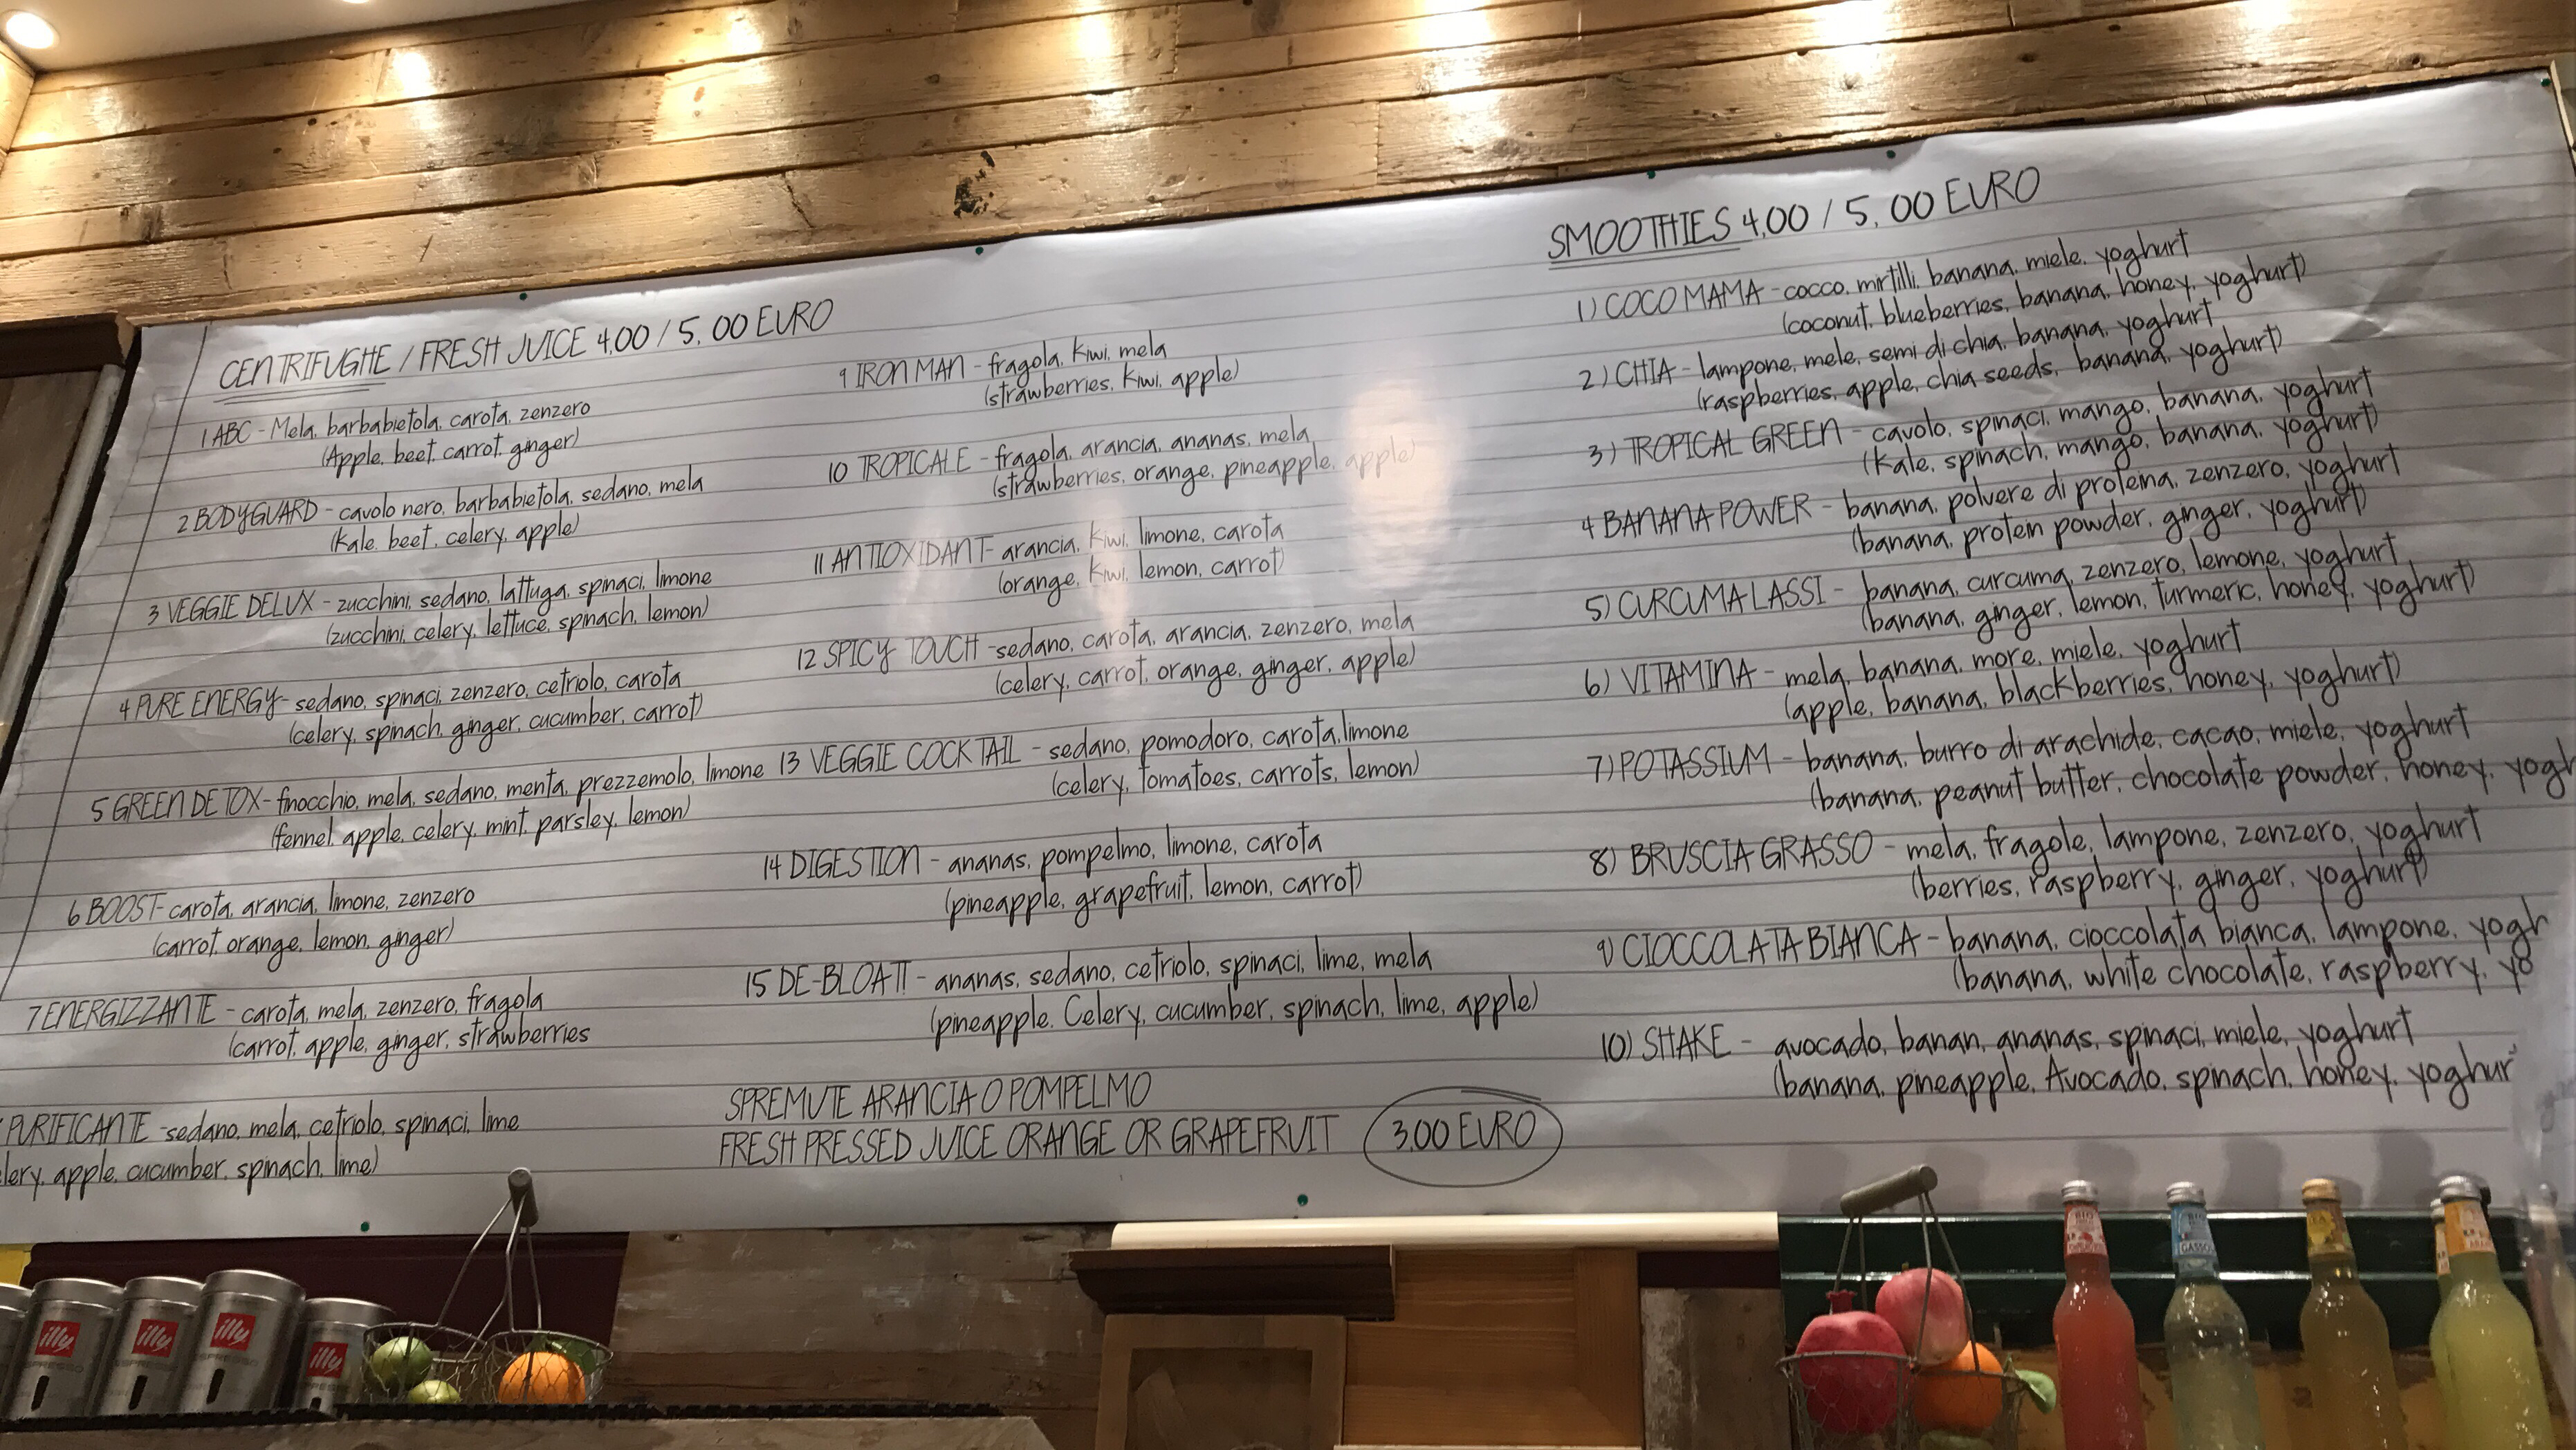 CENTRIFUGHE / FRESH JUICE 4,00 / 5,00 EURO
1 ABC - Mela, barbabietola, carota, zenzero
(Apple, beet, carrot, ginger)
2 BODYGUARD - cavolo nero, barbabietola, sedano, mela
(Kale, beet, celery, apple)
3 VEGGIE DELUX - zucchini, sedano, lattuga, spinaci, limone
(zucchini, celery, lettuce, spinach, lemon)
4 PURE ENERGY - sedano, spinaci, zenzero, cetriolo, carota
(celery, spinach, ginger, cucumber, carrot)
5 GREEN DETOX - finocchio, mela, sedano, menta, prezzemolo, limone
(fennel, apple, celery, mint, parsley, lemon)
6 BOOST - carota, arancia, limone, zenzero
(carrot, orange, lemon, ginger)
7 ENERGIZZANTE - carota, mela, zenzero, fragola
(carrot, apple, ginger, strawberries
PURIFICANTE - sedano, mela, cetriolo, spinaci, lime
lery, apple, cucumber, spinach, lime)
9 IRON MAN - fragola, kiwi, mela
(strawberries, kiwi, apple)
10 TROPICALE - fragola, arancia, ananas, mela
(strawberries, orange, pineapple, apple)
11 ANTIOXIDANT - arancia, kiwi, limone, carota
(orange, kiwi, lemon, carrot)
12 SPICY TOUCH - sedano, carota, arancia, zenzero, mela
(celery, carrot, orange, ginger, apple)
13 VEGGIE COCKTAIL - sedano, pomodoro, carota, limone
(celery, tomatoes, carrots, lemon)
14 DIGESTION - ananas, pompelmo, limone, carota
(pineapple, grapefruit, lemon, carrot)
15 DE-BLOAT! - ananas, sedano, cetriolo, spinaci, lime, mela
(pineapple, Celery, cucumber, spinach, lime, apple)
SPREMUTE ARANCIA O POMPELMO
FRESH PRESSED JUICE ORANGE OR GRAPEFRUIT 3,00 EURO
SMOOTHIES 4,00 / 5,00 EURO
1) COCO MAMA - cocco, mirtilli, banana, miele, yoghurt
(coconut, blueberries, banana, honey, yoghurt)
2) CHIA - lampone, mele, semi di chia, banana, yoghurt
(raspberries, apple, chia seeds, banana, yoghurt)
3) TROPICAL GREEN - cavolo, spinaci, mango, banana, yoghurt
(Kale, spinach, mango, banana, yoghurt)
4 BANANA POWER - banana, polvere di proteina, zenzero, yoghurt
(banana, protein powder, ginger, yoghurt)
5) CURCUMA LASSI - banana, curcuma, zenzero, lemone, yoghurt
(banana, ginger, lemon, turmeric, honey, yoghurt)
6) VITAMINA - mela, banana, more, miele, yoghurt
(apple, banana, blackberries, honey, yoghurt)
7) POTASSIUM - banana, burro di arachide, cacao, miele, yoghurt
(banana, peanut butter, chocolate powder, honey, yogh
8) BRUSCIA GRASSO - mela, fragole, lampone, zenzero, yoghurt
(berries, raspberry, ginger, yoghurt)
9) CIOCCOLATA BIANCA - banana, cioccolata bianca, lampone, yogh
(banana, white chocolate, raspberry, yo
10) SHAKE - avocado, banan, ananas, spinaci, miele, yoghurt
(banana, pineapple, Avocado, spinach, honey, yoghur
illy
ESPRESSO
illy
ESPRESSO
illy
ESPRESSO
illy
BIO
BIO
GASSO